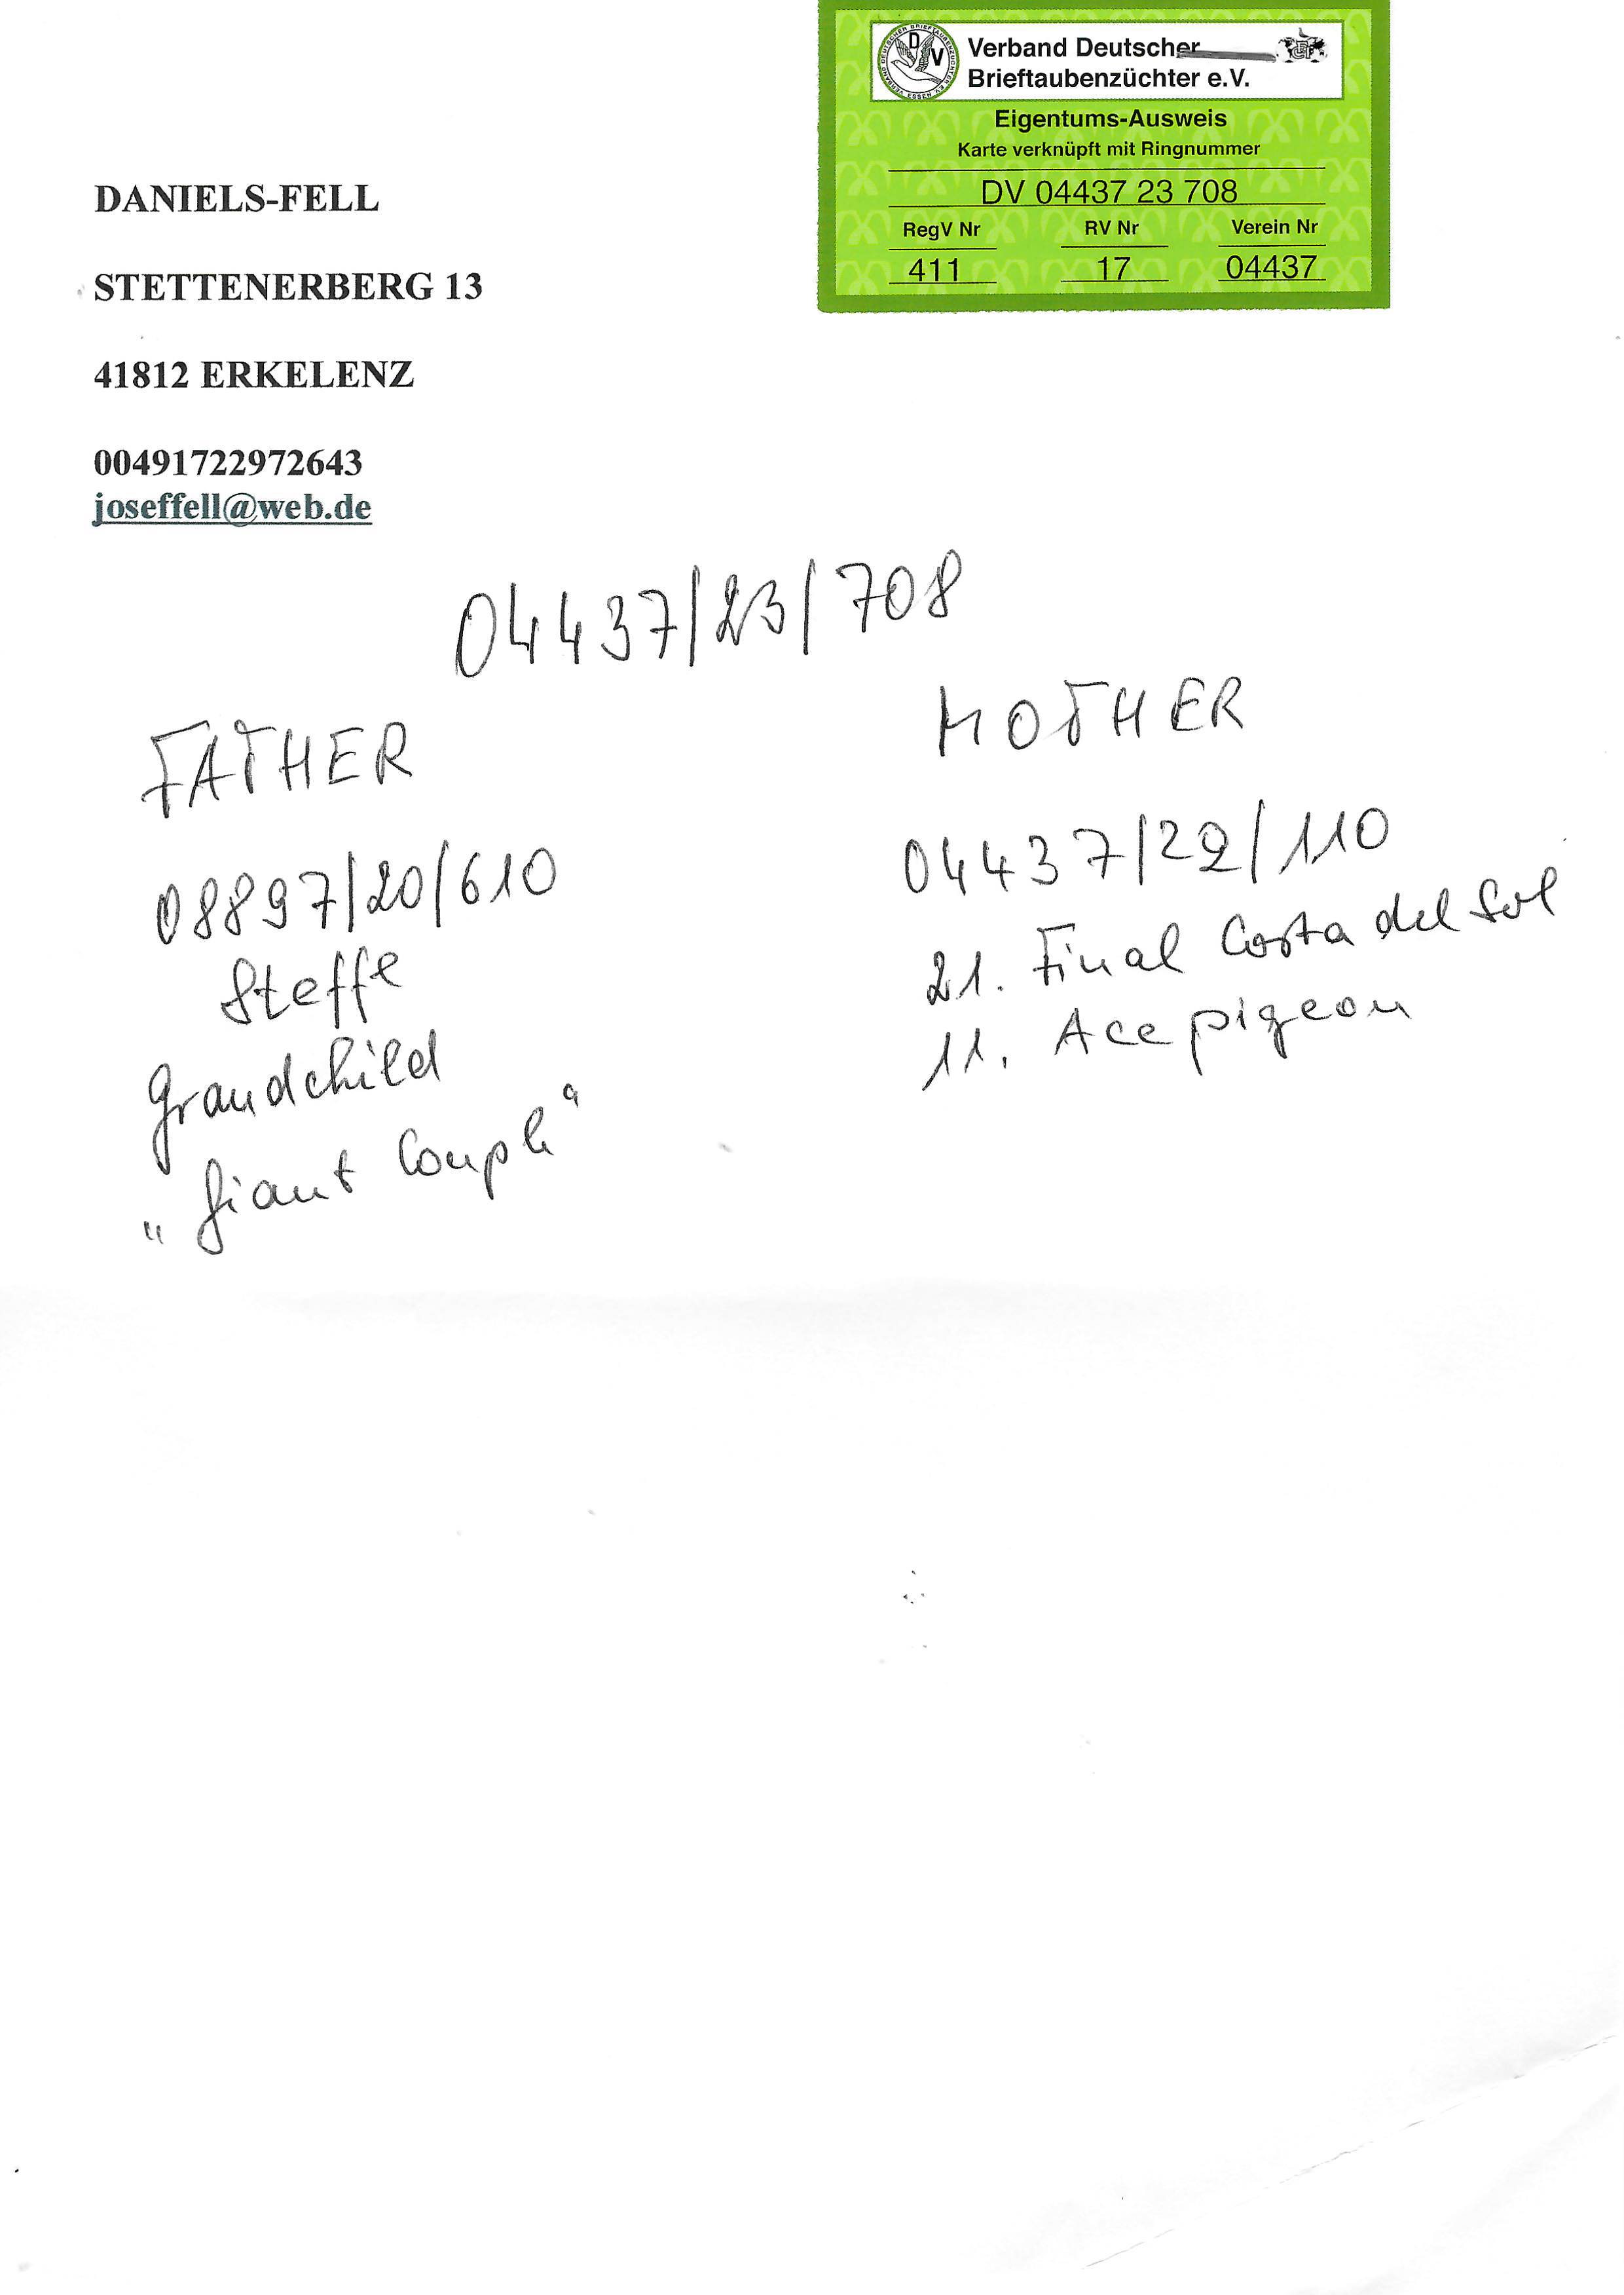 Verband Deutscher
Brieftaubenzüchter e.V.
Eigentums-Ausweis
Karte verknüpft mit Ringnummer
DV 04437 23 708
RegV Nr RV Nr Verein Nr
411 17 04437
DANIELS-FELL
STETTENERBERG 13
41812 ERKELENZ
00491722972643
joseffell@web.de
04437/23/708
FATHER
08897/20/610
Steffe
Grandchild
„Giant Couple“
MOTHER
04437/22/110
21. Final Costa del Sol
11. Ace pigeon